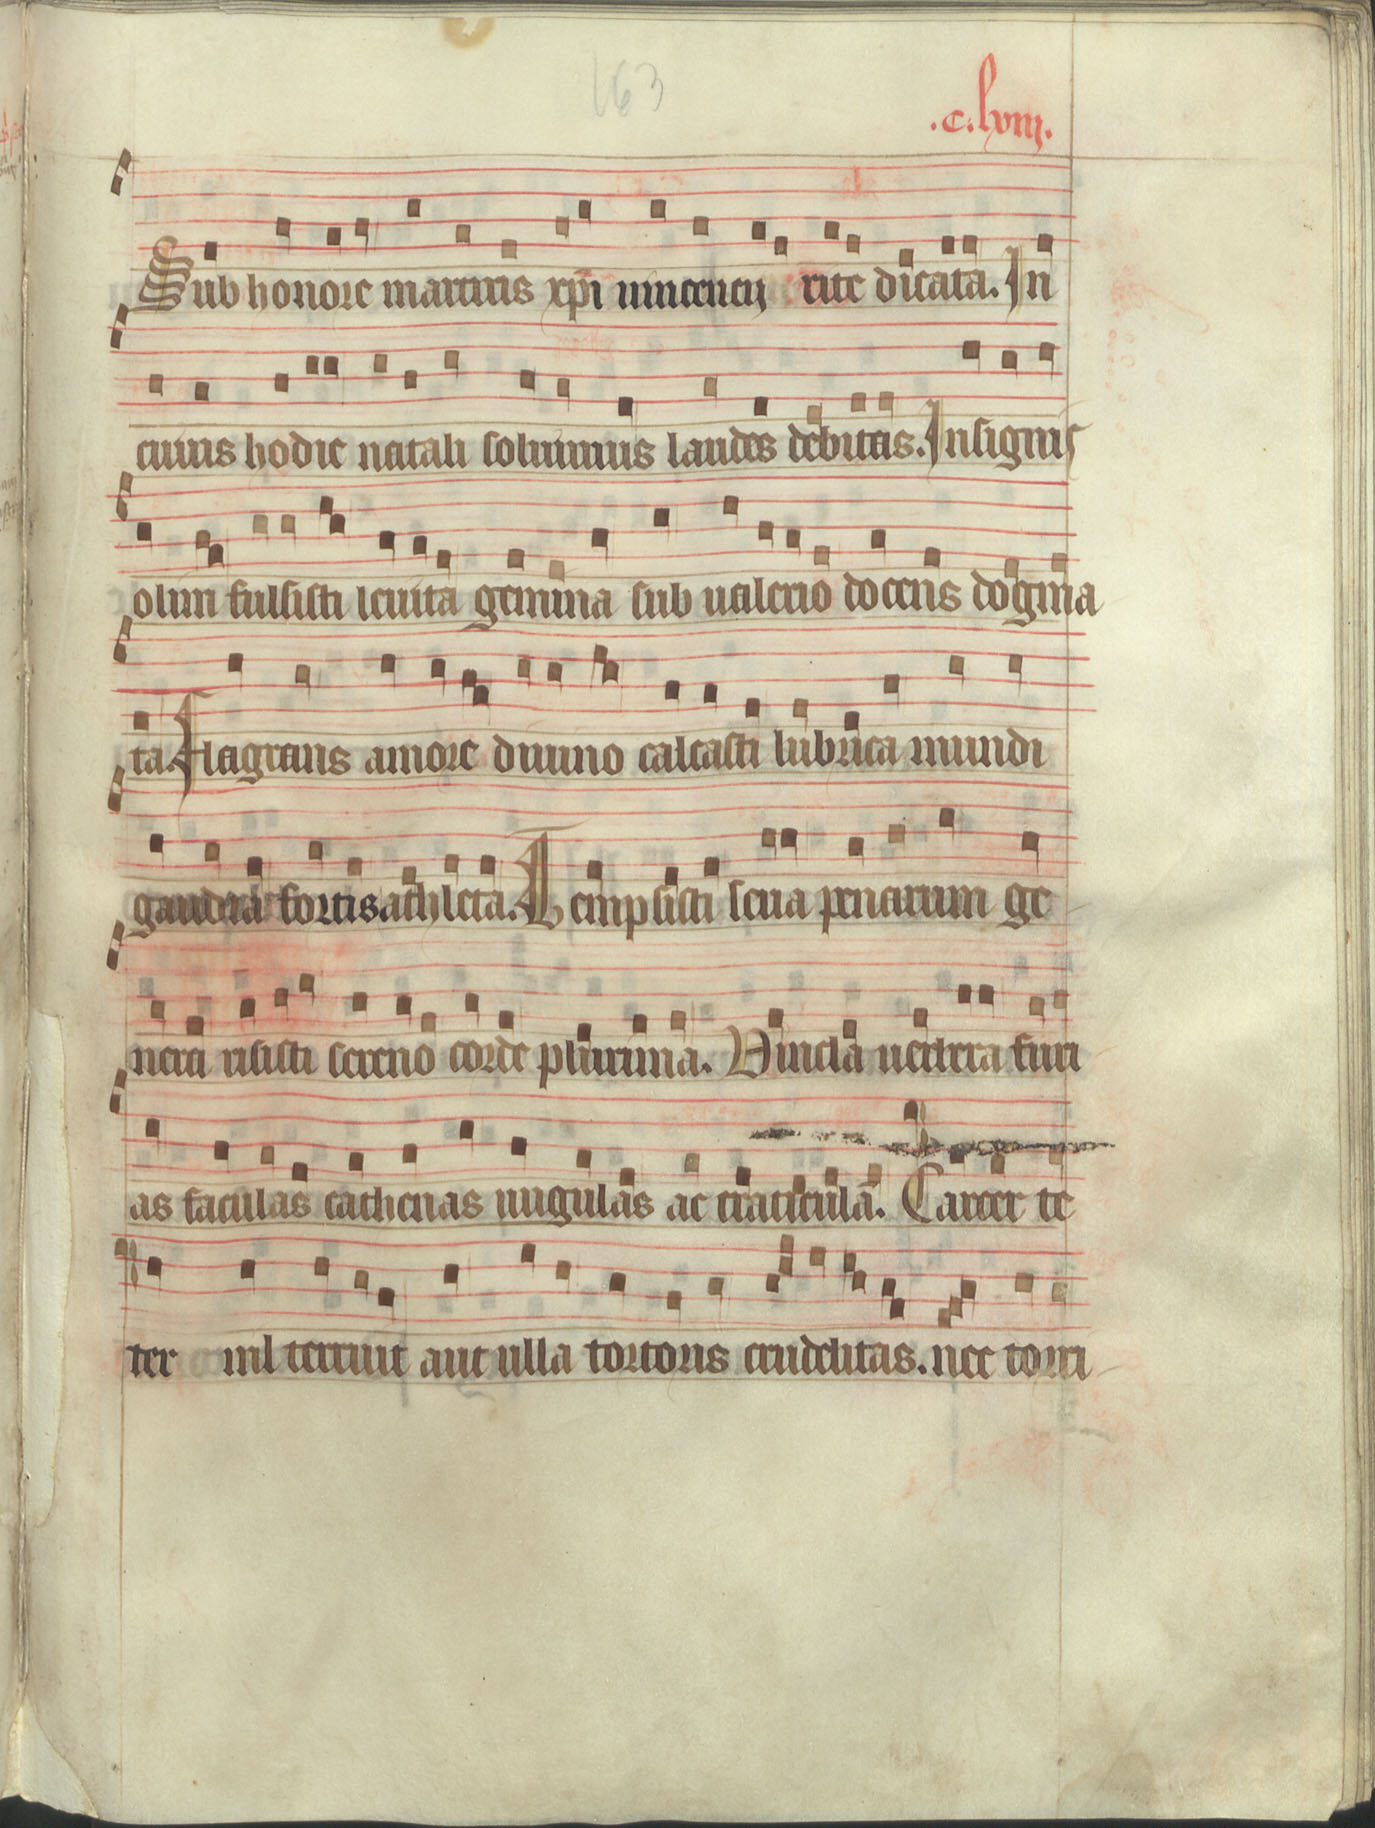 163
.c.lviii.
Sub honore martiris xpi uincencij rite dicata. In
cuius hodie natali soluimus laudes debitas. Insignis
olim fulsisti leuita gemma sub ualerio docens dogma
ta. Flagrans amore diuino calcasti lubrica mundi
gaudia fortis athleta. Tempsisti seua penarum ge
nera risisti sereno corde plurima. Vincla uerbera furi
as faculas cathenas ungulas ac craticula. Carcer te
ter nil terruit aut ulla tortoris crudelitas. nec torri